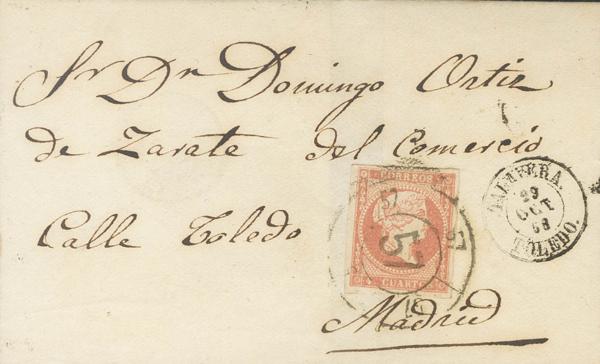 Sr Dn Domingo Ortiz
de Zarate del Comercio
Calle Toledo
Madrid
CORREOS
CUARTOS
57
57
57
TALAVERA.
29
OCT
58
TOLEDO.